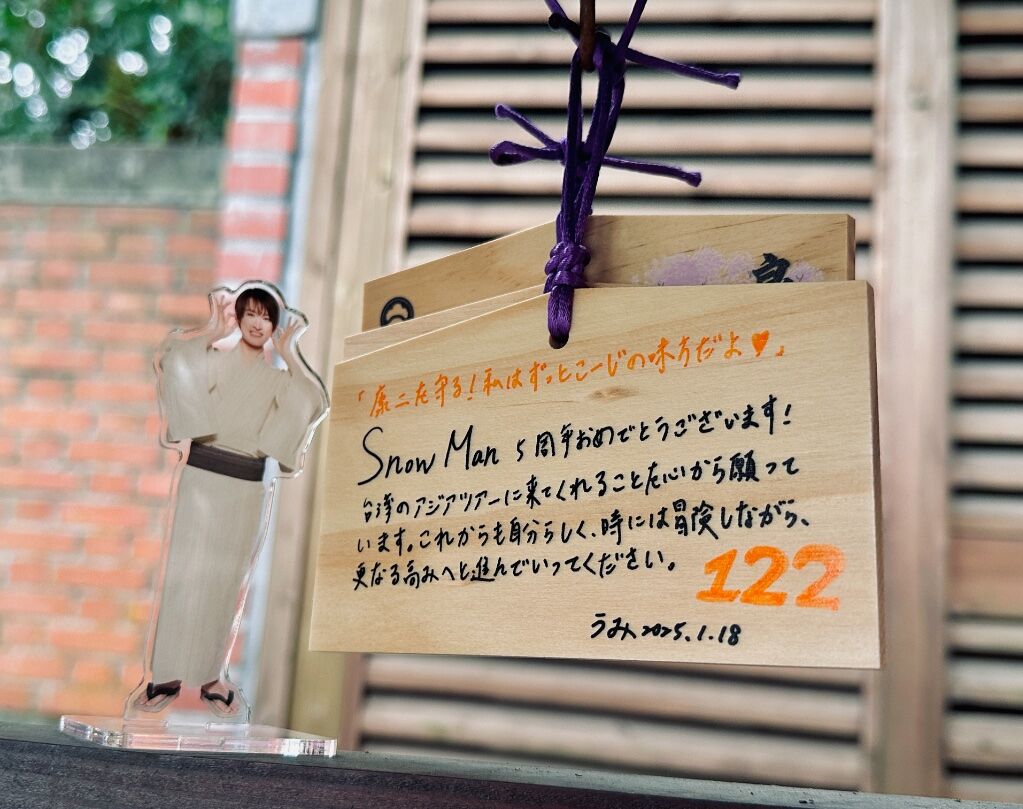 「康二を守る！私はずっとこーじの味方だよ♥」
Snow Man 5周年おめでとうございます！
台湾のアジアツアーに来てくれることを心から願って
います。これからも自分らしく、時には冒険しながら、
更なる高みへと進んでいってください。
122
うみ 2025.1.18